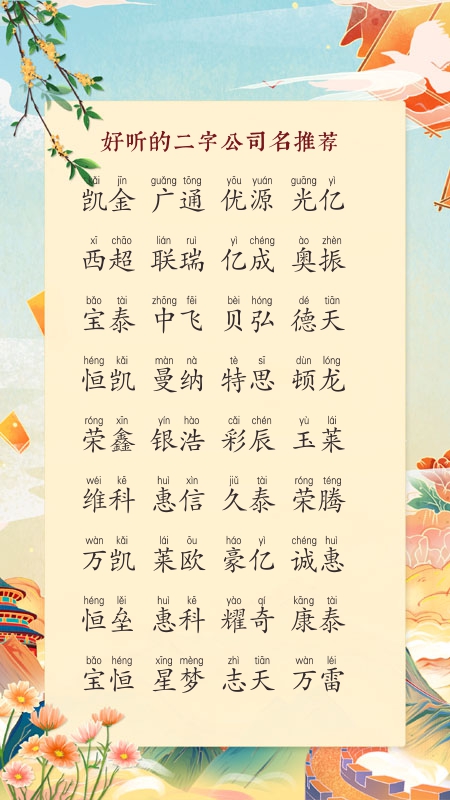 好听的二字公司名推荐
kǎi jīn guǎng tōng yōu yuán guāng yì
凯金 广通 优源 光亿
xī chāo lián ruì yì chéng ào zhèn
西超 联瑞 亿成 奥振
bǎo tài zhōng fēi bèi hóng dé tiān
宝泰 中飞 贝弘 德天
héng kǎi màn nà tè sī dùn lóng
恒凯 曼纳 特思 顿龙
róng xīn yín hào cǎi chén yù lái
荣鑫 银浩 彩辰 玉莱
wéi kē huì xìn jiǔ tài róng téng
维科 惠信 久泰 荣腾
wàn kǎi lái ōu háo yì chéng huì
万凯 莱欧 豪亿 诚惠
héng lěi huì kē yào qí kāng tài
恒垒 惠科 耀奇 康泰
bǎo héng xīng mèng zhì tiān wàn léi
宝恒 星梦 志天 万雷